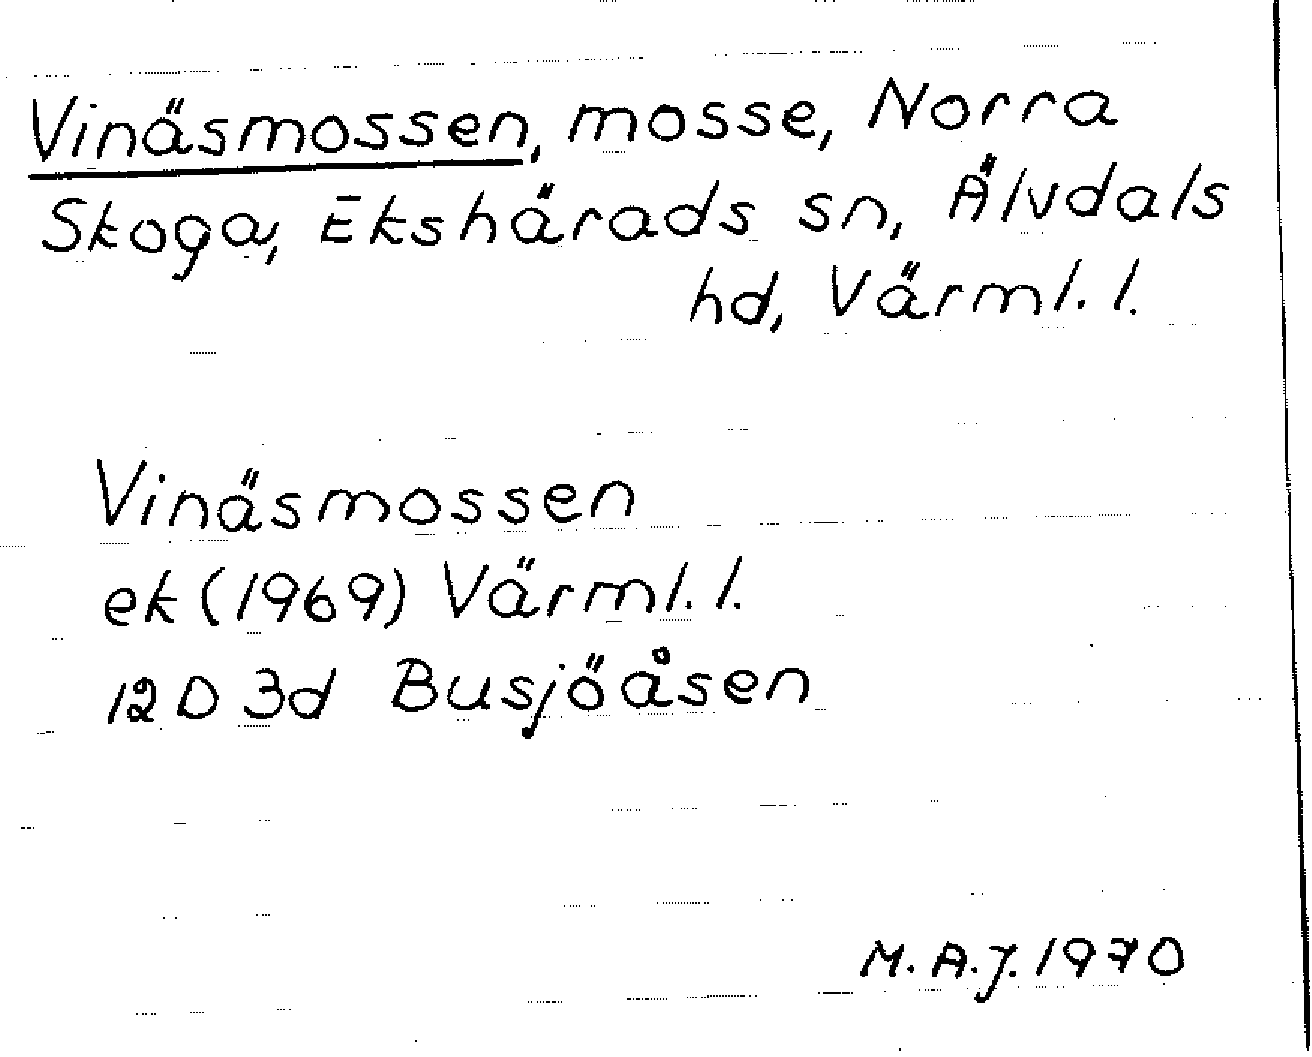 Vinäsmossen, mosse, Norra
Skoga, Ekshärads sn, Älvdals
hd, Värml. l.
Vinäsmossen
ek (1969) Värml. l.
12 D 3d Busjöåsen
M. A. J. 1970